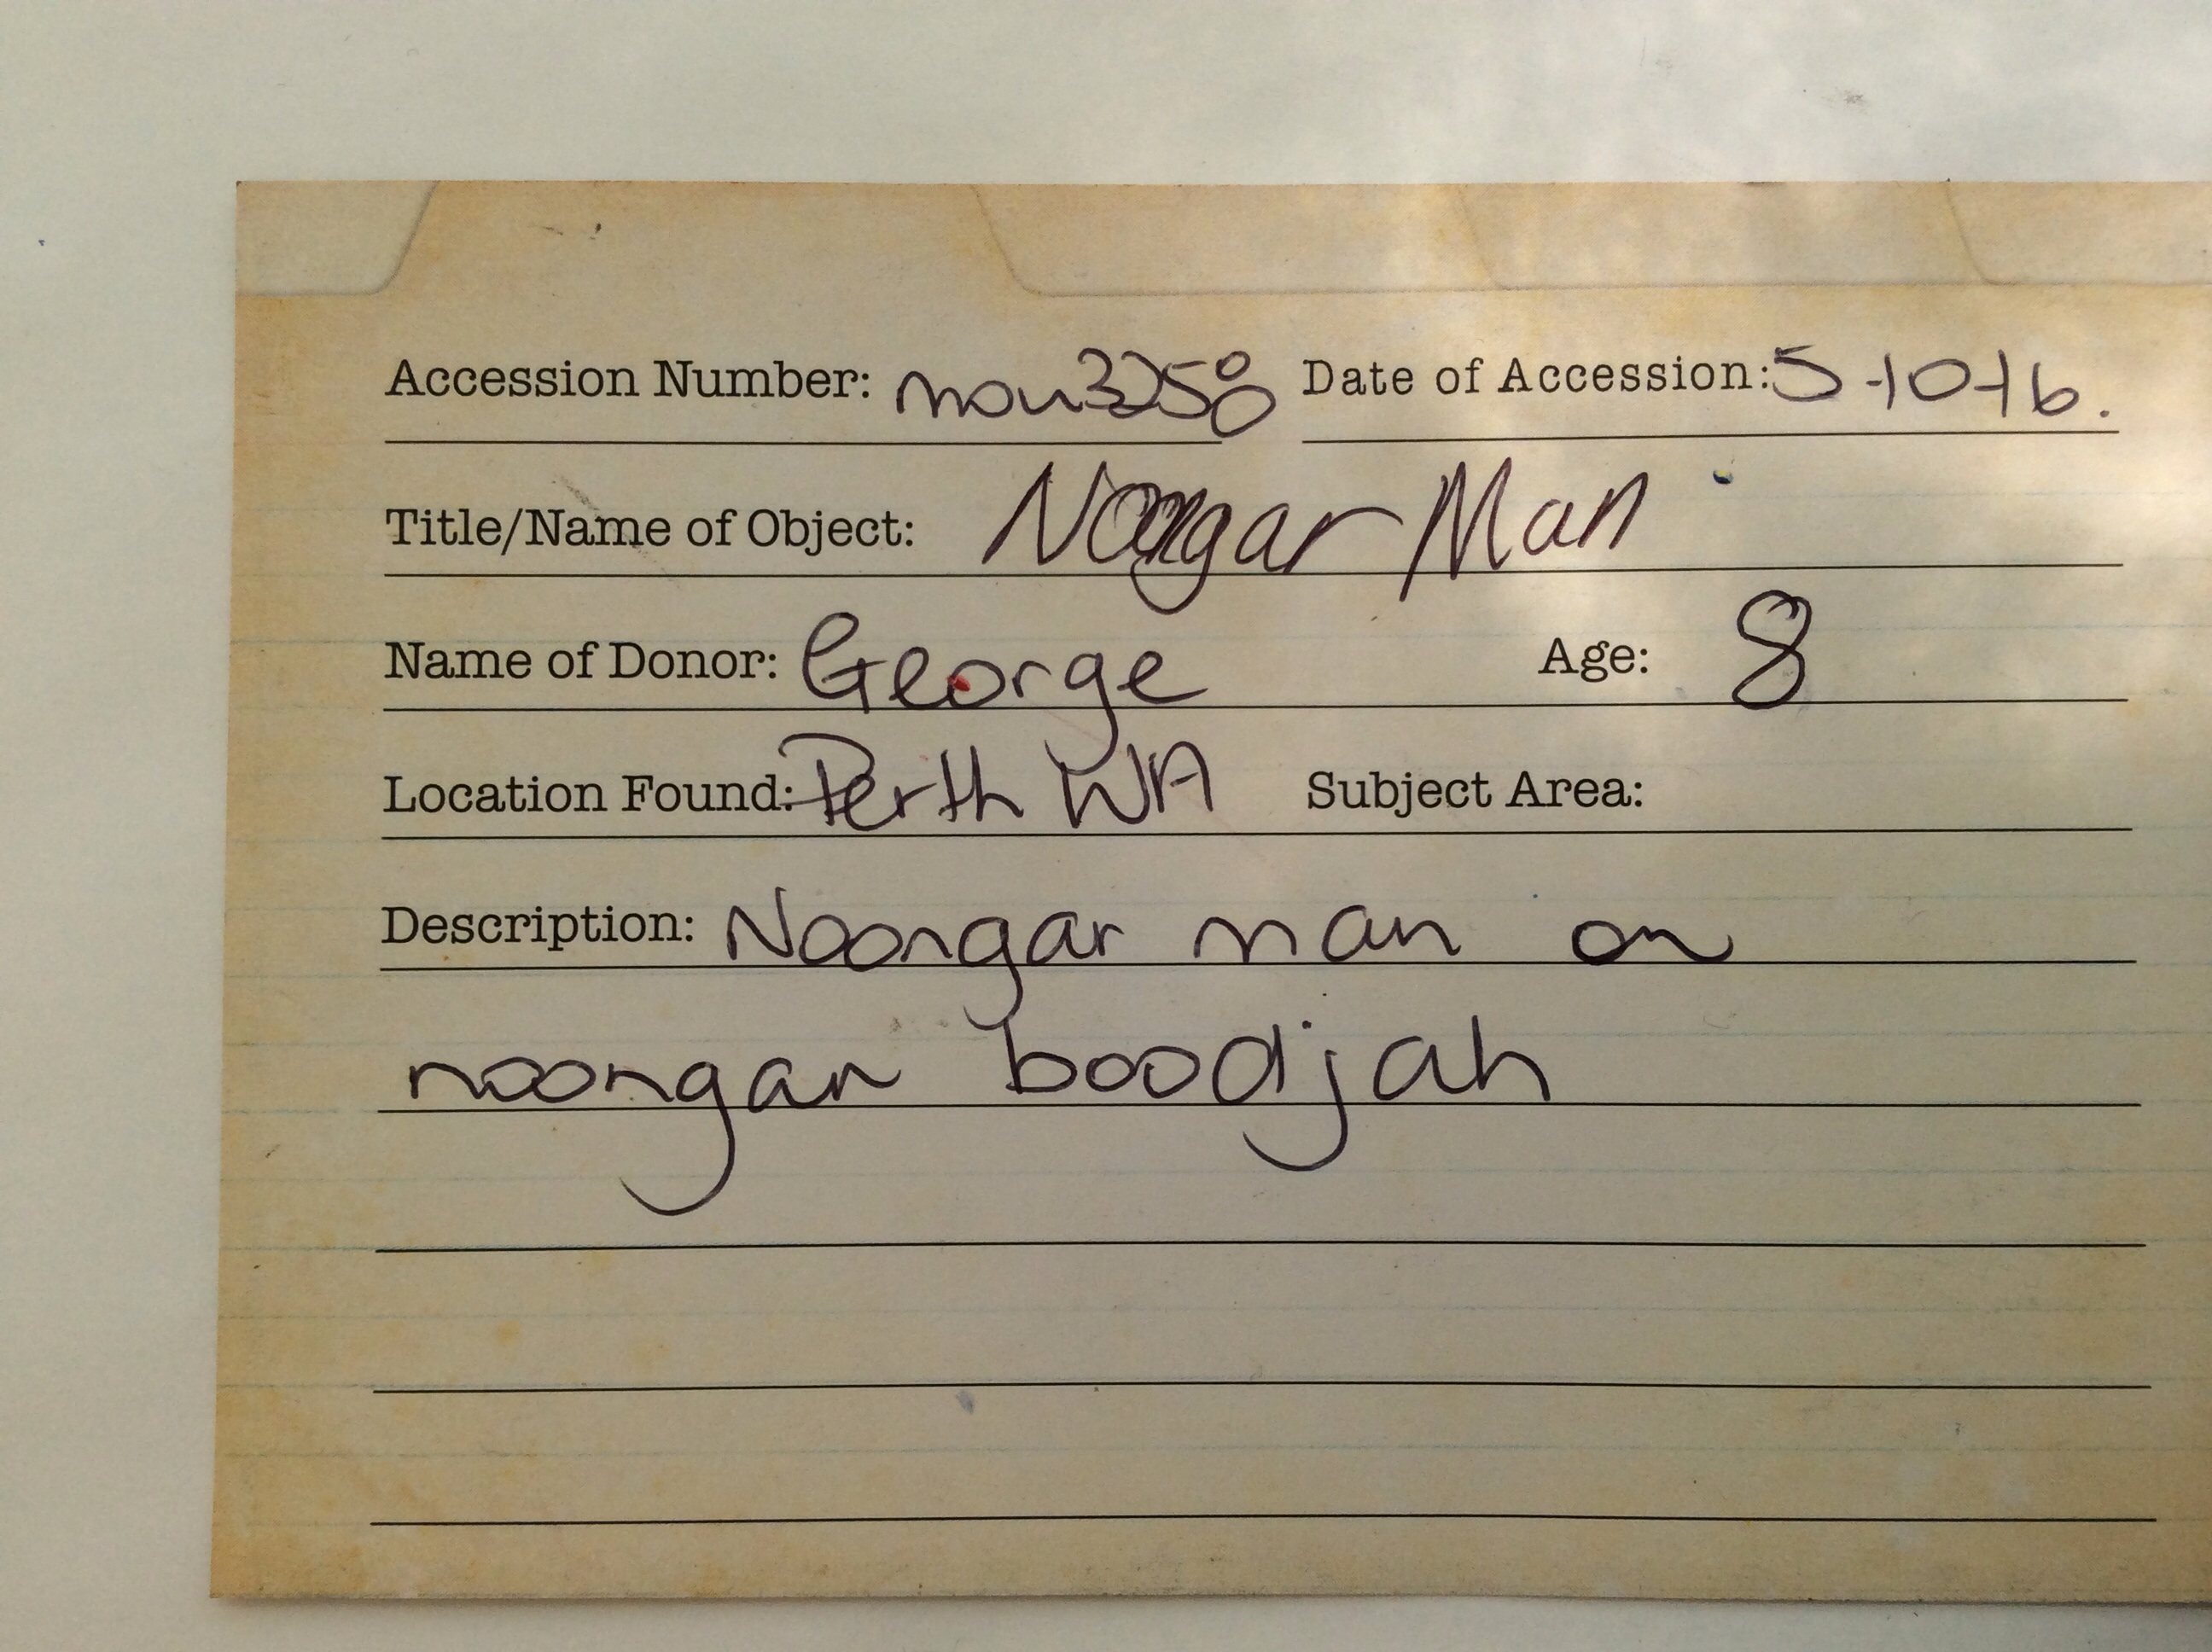 Accession Number: mou3258 Date of Accession: 5-10-16.
Title/Name of Object: Noongar Man
Name of Donor: George Age: 8
Location Found: Perth WA Subject Area:
Description: Noongar man on
noongar boodjah